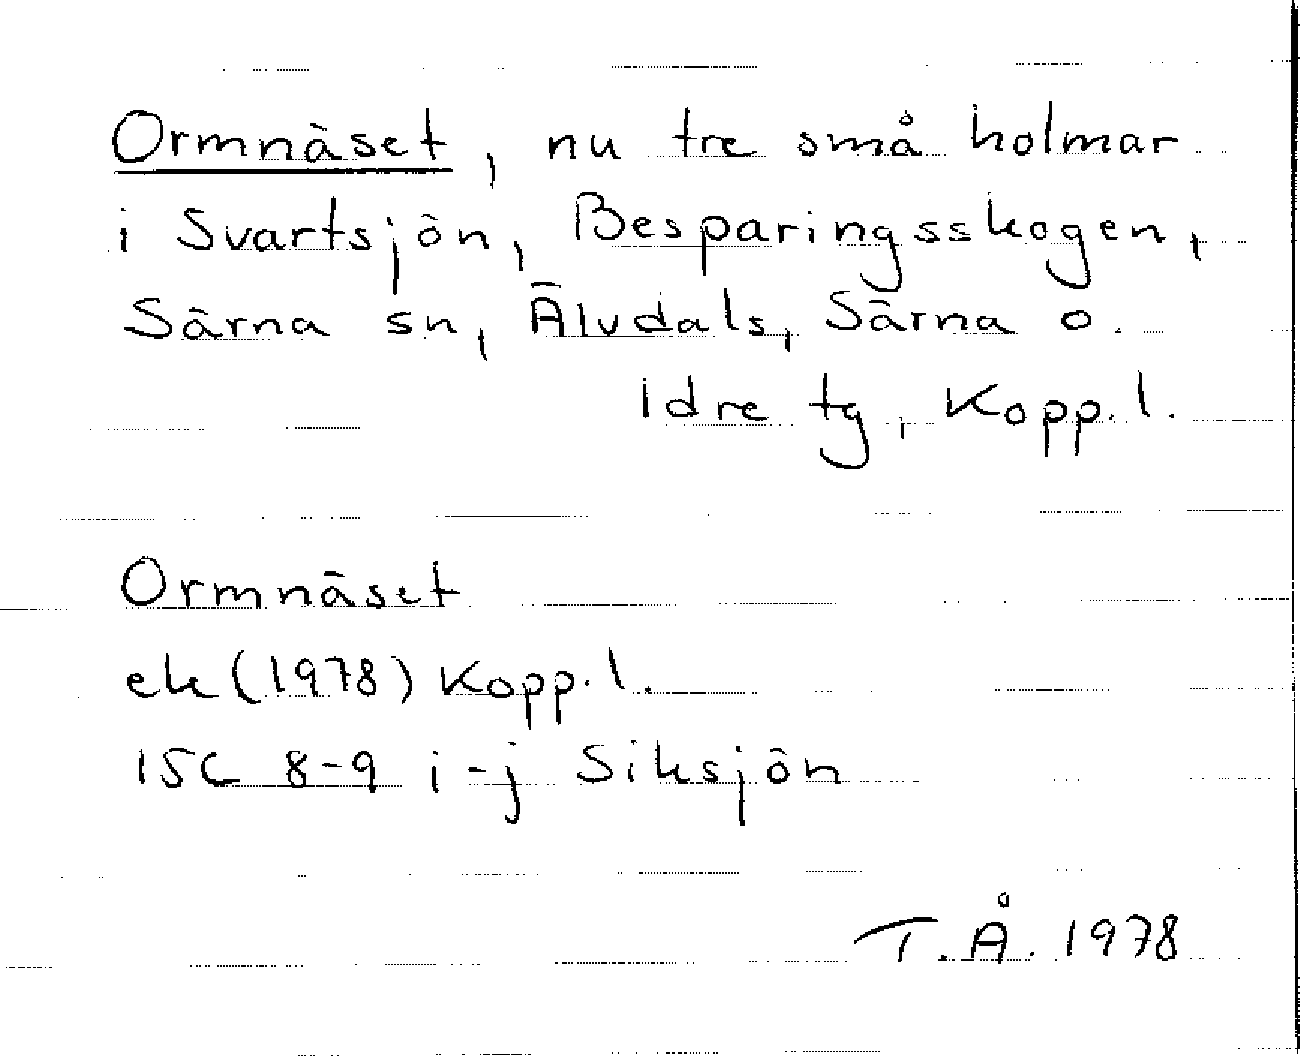 Ormnäset, nu tre små holmar
i Svartsjön, Besparingsskogen,
Särna sn, Älvdals, Särna o.
Idre tg, Kopp. l.
Ormnäset
ek (1978) Kopp. l.
15C 8-9 i-j Siksjön
T.Å. 1978